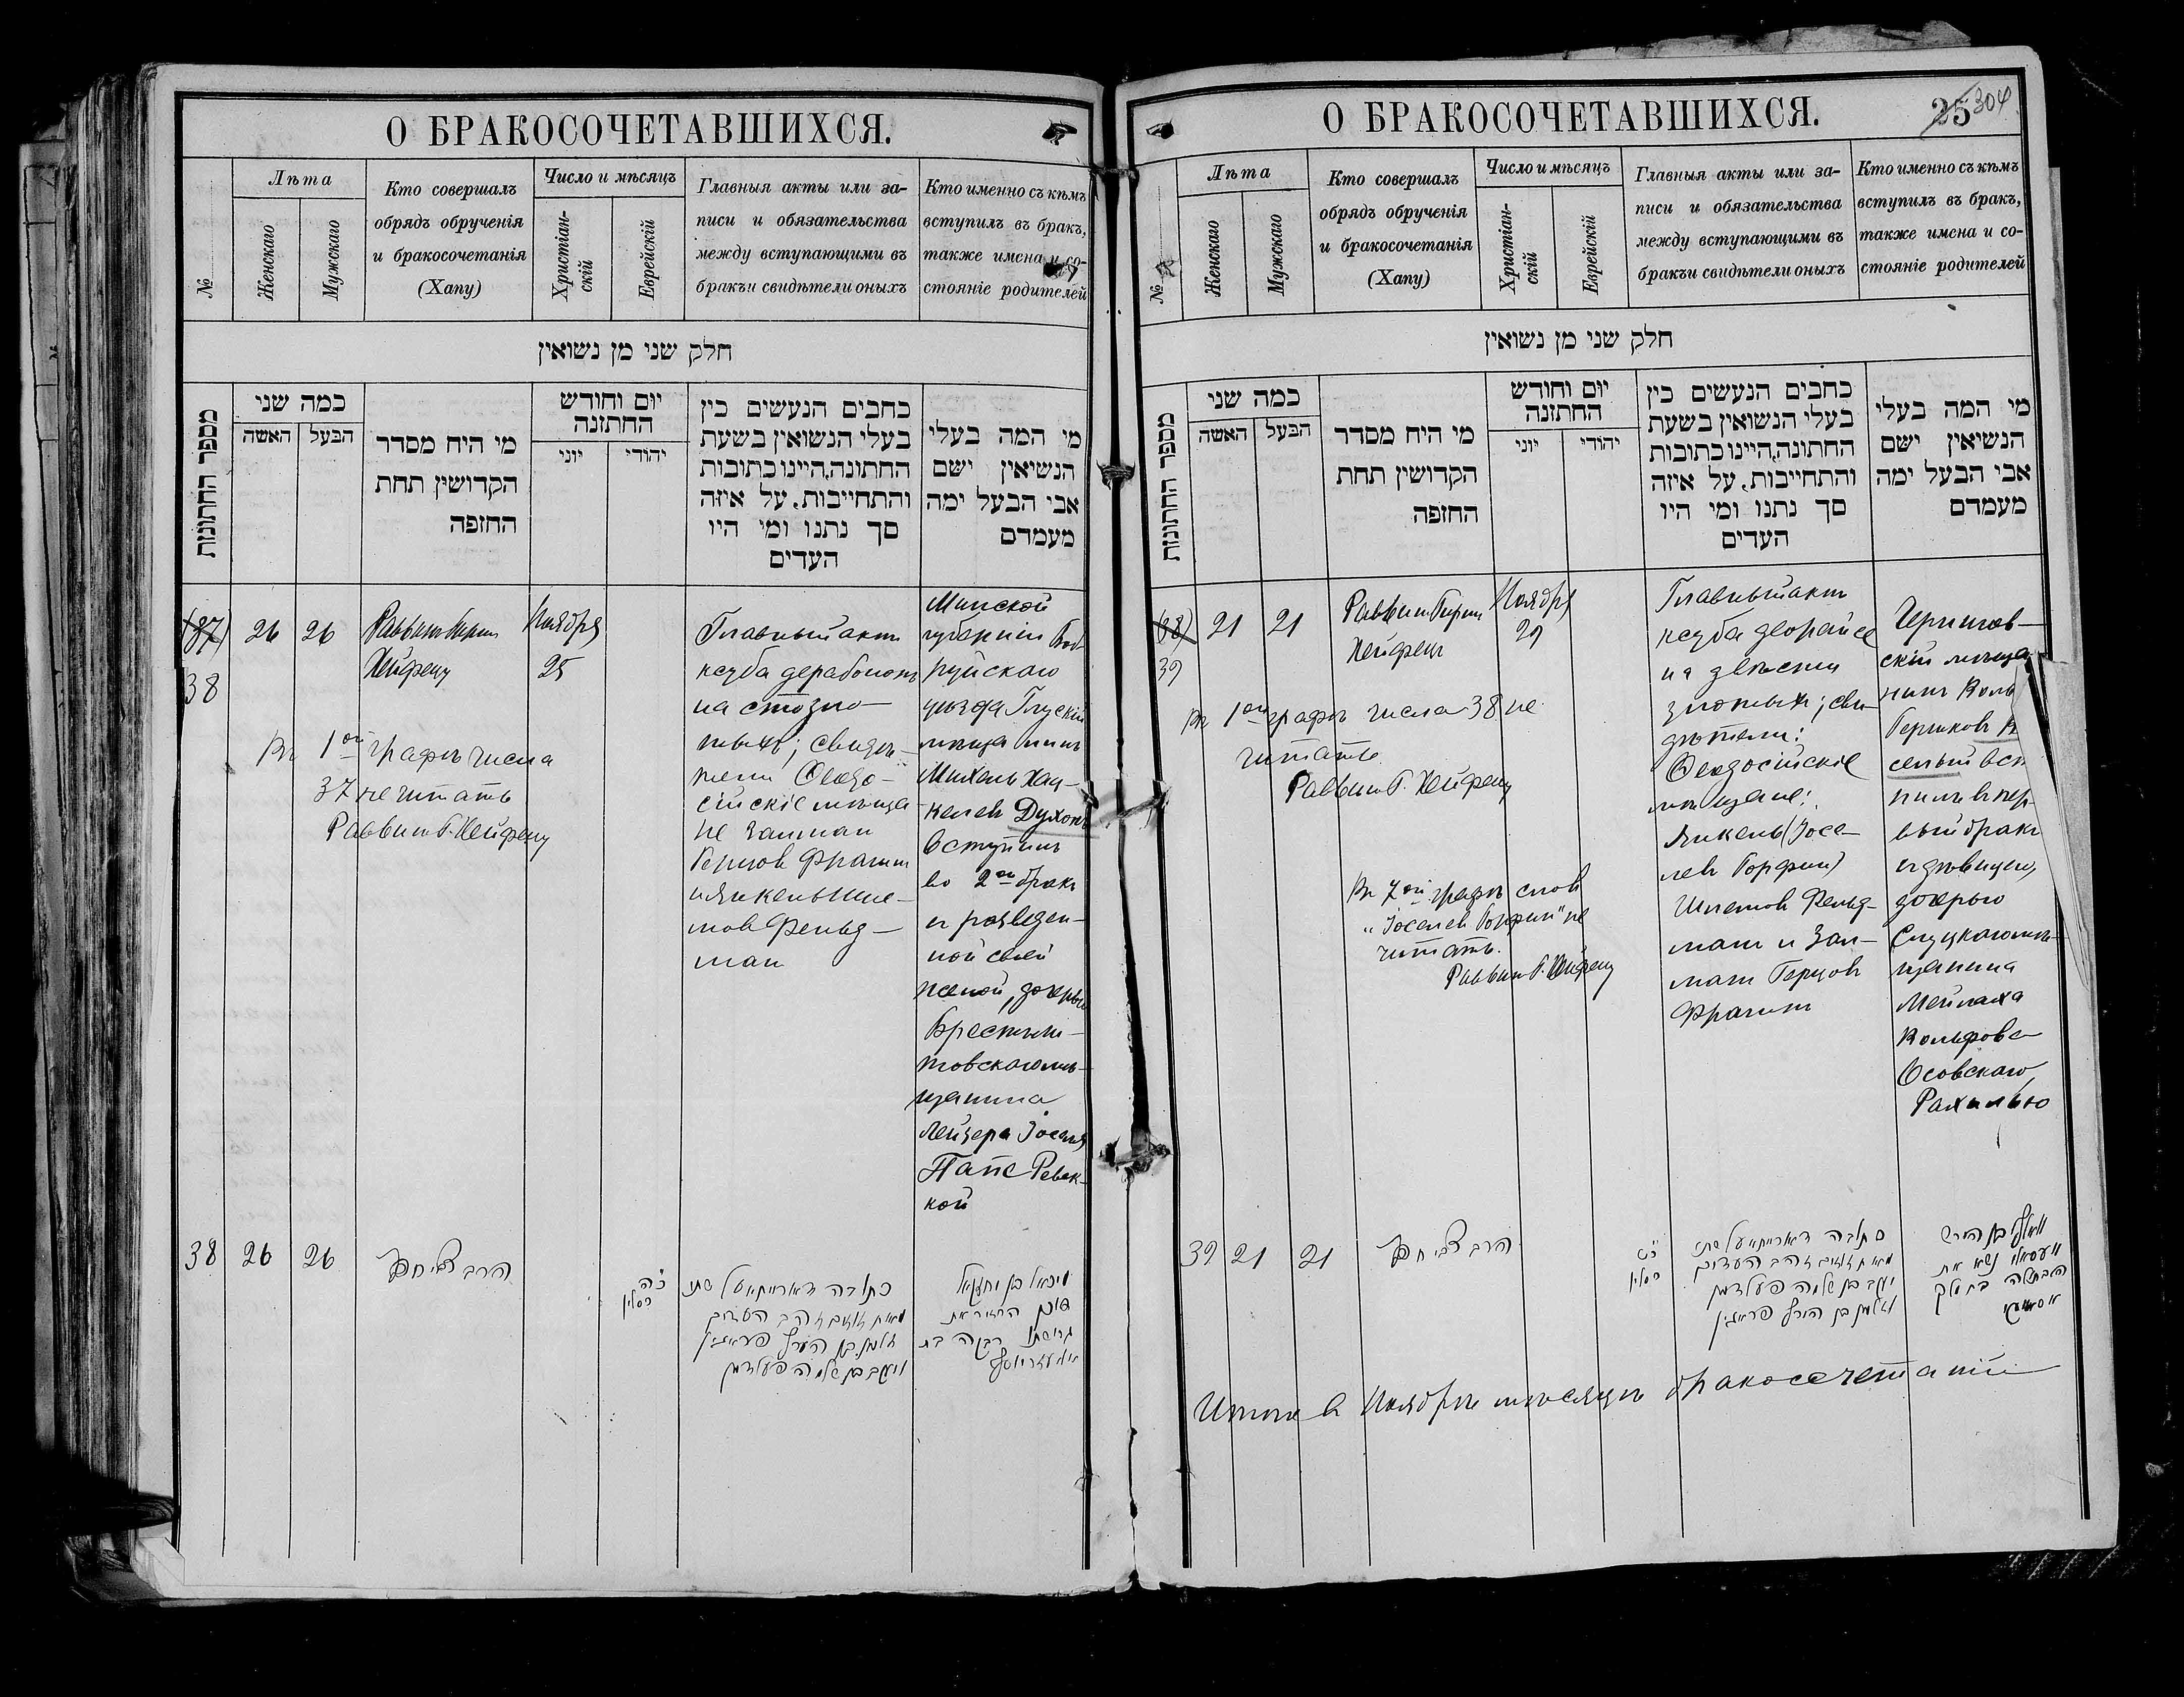 О БРАКОСОЧЕТАВШИХСЯ.
№
Лѣта
Женскаго
Мужскаго
Кто совершалъ
обрядъ обрученія
и бракосочетанія
(Хапу)
Число и мѣсяцъ
Христіан-
скій
Еврейскій
Главныя акты или за-
писи и обязательства
между вступающими въ
бракъи свидѣтели оныхъ
Кто именно съ кѣмъ
вступилъ въ бракъ,
также имена и со-
стояніе родителей
חלק שני מן נשואין
מספר החתונות
כמה שני
האשה
הבעל
מי היח מסדר
הקדושין תחת
החזפה
יום וחודש
החתונה
יוני
יהודי
כחבים הנעשים כין
בעלי הנשואין בשעת
החתונה,היינו כתובות
והתחייבות, על איזה
סך נתנו ומי היו
העדים
מי המה בעלי
הנשיאין ישם
אבי הבעל ימה
מעמדם
(37)
38
26
26
Раввинъ Герш
Хейфецъ
Ноября
25
Главный актъ
кзуба дерабонон
на сто зло-
тыхъ; свидѣ-
тели Ѳеодо-
сійскіе мѣща
не Залман
Герцов Фрагин
и Янкель Шле-
мов Фельд-
ман
Минской
губерніи Боб-
руйскаго
уѣзда Глускій
мѣщанинъ
Михель Хац-
келев Духон
вступилъ
во 2й бракъ
с разведен-
ной своей
женой, дочерью
Брестъ-Ли-
товскаго мѣ-
щанина
Лейзера Іоселя
Папе Ревек-
кой
Въ 1ой графѣ числа
37 не читать
Раввинъ Г. Хейфецъ
38
26
26
הרב צבי חפץ
כ"ה
כסלין
כתובה דאורייתא על שתי
מאות זוזים זהב העדים
זלמן בן הערץ פראגין
ויעקב בן שלמה פעלדמן
מיכאל בן יחזקאל
החזיר את
גרושתו רבקה בת
О БРАКОСОЧЕТАВШИХСЯ.
25 304
№
Лѣта
Женскаго
Мужскаго
Кто совершалъ
обрядъ обрученія
и бракосочетанія
(Хапу)
Число и мѣсяцъ
Христіан-
скій
Еврейскій
Главныя акты или за-
писи и обязательства
между вступающими въ
бракъи свидѣтели оныхъ
Кто именно съ кѣмъ
вступилъ въ бракъ,
также имена и со-
стояніе родителей
חלק שני מן נשואין
מספר החתונות
כמה שני
האשה
הבעל
מי היח מסדר
הקדושין תחת
החזפה
יום וחודש
החתונה
יוני
יהודי
כחבים הנעשים כין
בעלי הנשואין בשעת
החתונה,היינו כתובות
והתחייבות, על איזה
סך נתנו ומי היו
העדים
מי המה בעלי
הנשיאין ישם
אבי הבעל ימה
מעמדם
(38)
39
21
21
Раввинъ Герш
Хейфецъ
Ноября
29
Главный актъ
кзуба деорайсе
на двѣсти
злотыхъ; сви-
дѣтели:
Ѳеодосійскіе
мѣщане:
Янкель (Іосе-
лев Горфин)
Шлемов Фельд-
ман и Зал-
ман Герцов
Фрагин
Чернигов-
скій мѣща
нинъ Воль
Гершков
селый всту
пилъ в пер-
вый бракъ
с дѣвицею,
дочерью
Слуцкаго мѣ-
щанина
Мейлаха
Вольфова
Осовскаго
Рахилью
Въ 1ой графѣ числа 38 не
читать
Раввинъ Г. Хейфецъ
Въ 7ой графѣ слов
"Іоселев Горфин" не
читать.
Раввинъ Г. Хейфецъ
39
21
21
הרב צבי חפץ
כ"ט
כסלין
כתובה דאורייתא על שתי
מאות זוזים זהב העדים
יעקב בן שלמה פעלדמן
וזלמן בן הערץ פראגין
נשא את
Итого в Ноябрѣ мѣсяцѣ бракосочетаній